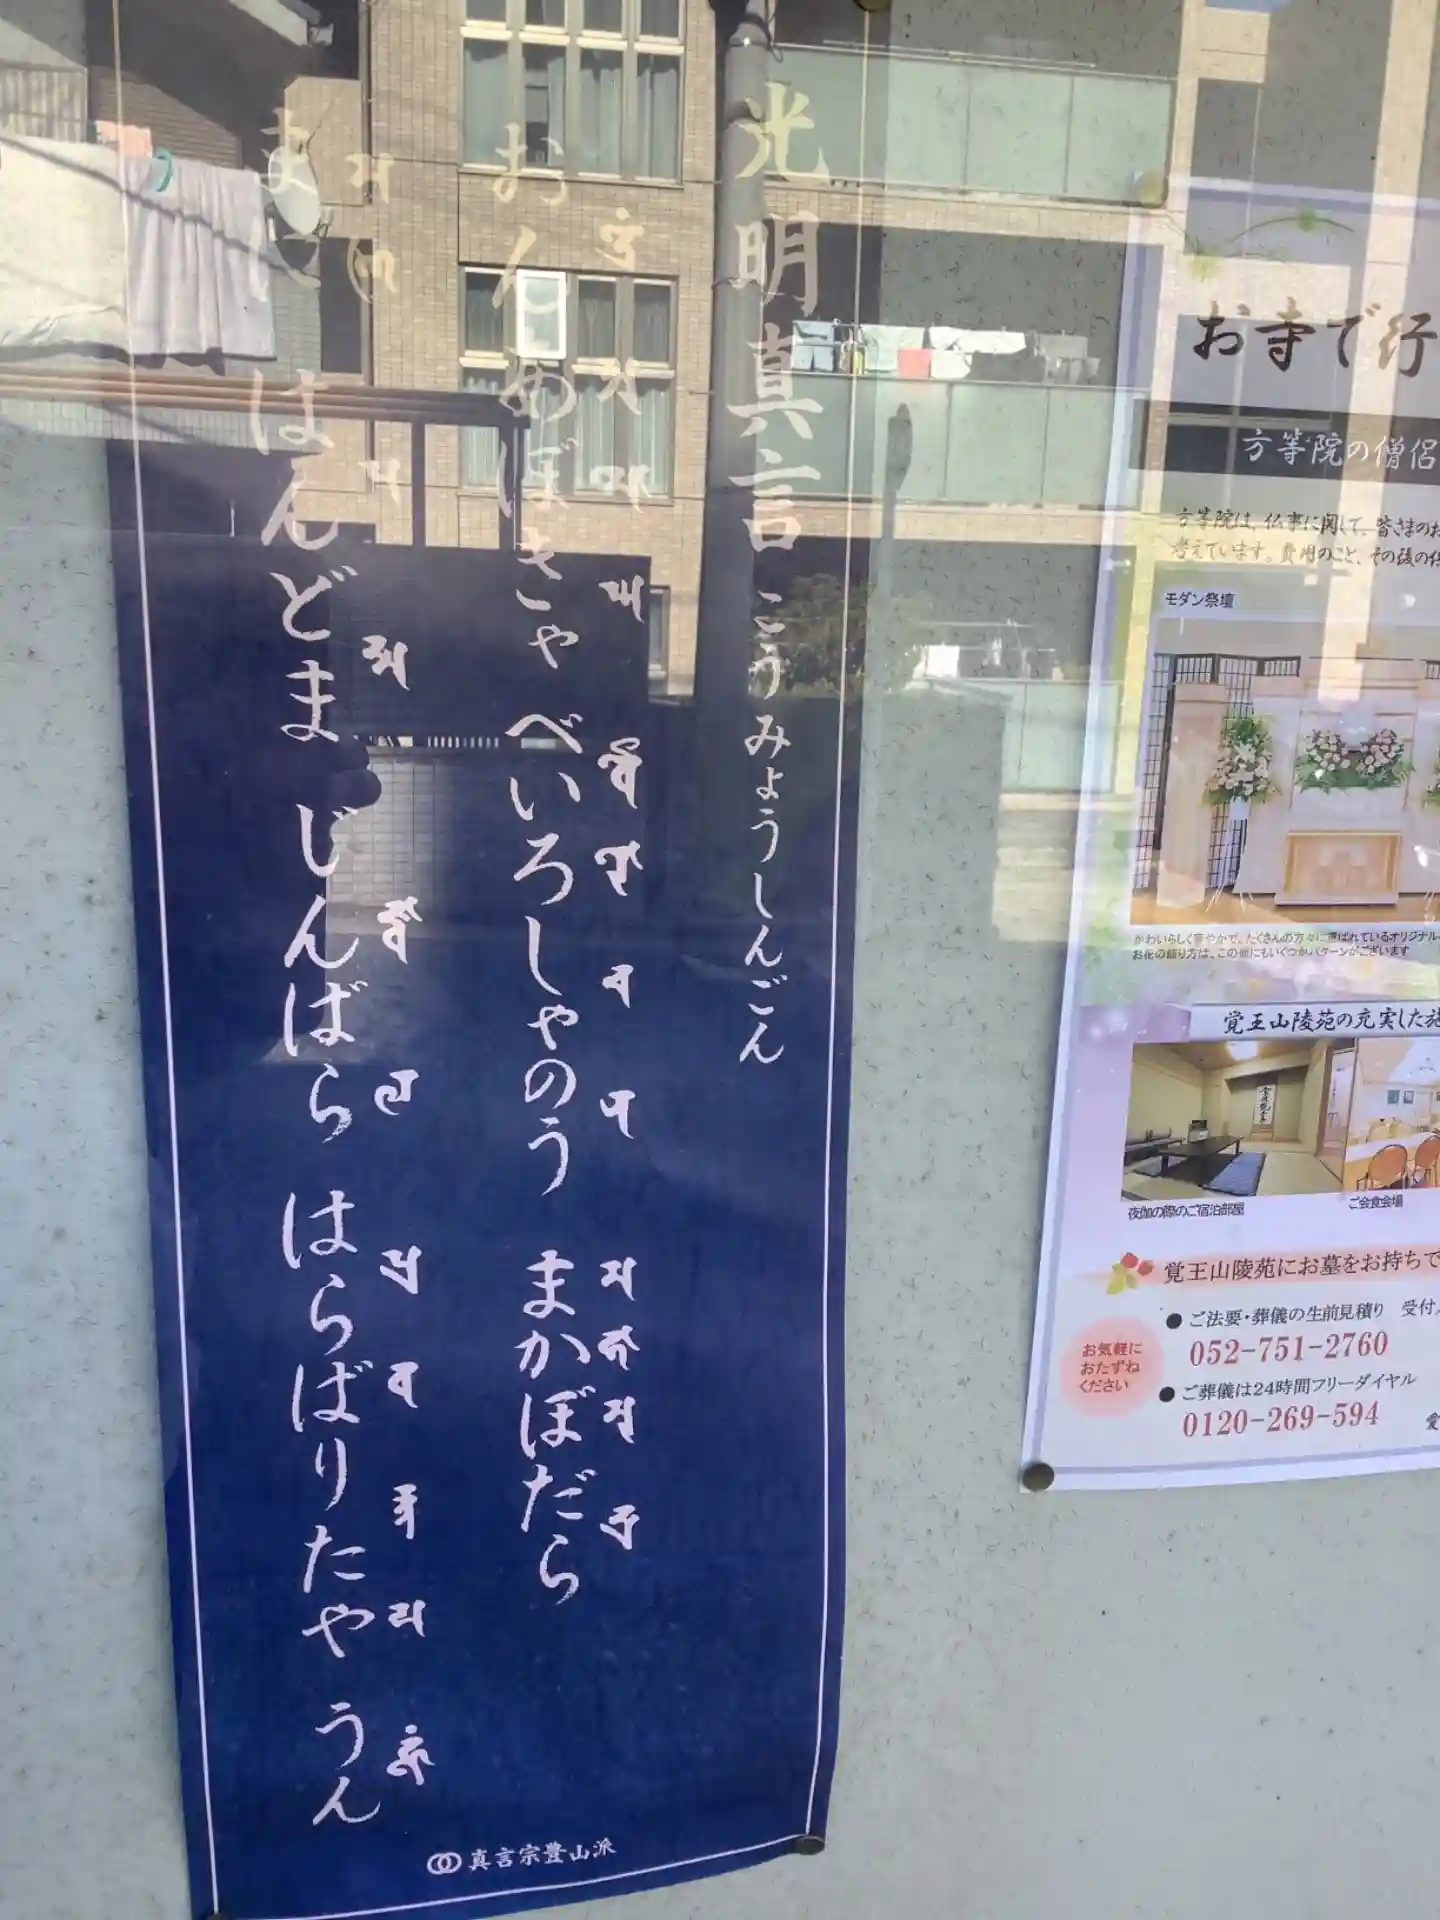 光明真言 こうみょうしんごん
おん あぼきゃ べいろしゃのう まかぼだら
まに はんどま じんばら はらばりたや うん
真言宗豊山派
お寺で行
方等院の僧侶
方等院は、仏事に関して、皆さまのお
考えています。費用のこと、その後の供
モダン祭壇
かわいらしく華やかで、たくさんの方々に選ばれているオリジナル
お花の飾り方は、この他にもいくつかパターンがございます
覚王山陵苑の充実した施
夜伽の際のご宿泊部屋
ご会食会場
覚王山陵苑にお墓をお持ちで
お気軽に
おたずね
ください
● ご法要・葬儀の生前見積り 受付
052-751-2760
● ご葬儀は24時間フリーダイヤル
0120-269-594
愛